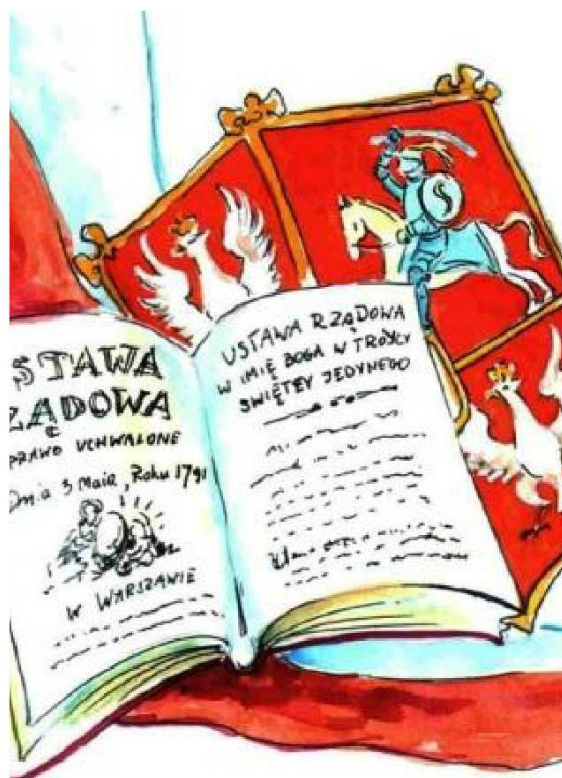 STAWA
ZĄDOWA
PRAWO UCHWALONE
Dnia 3 Maia, Roku 1791
W WARSZAWIE
USTAWA RZĄDOWA
W IMIĘ BOGA W TRÓYCY
ŚWIĘTEY JEDYNEGO